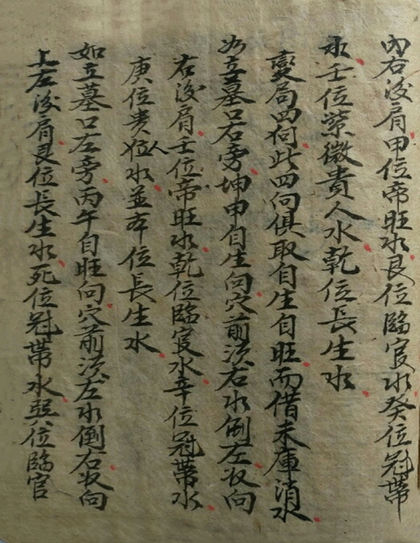 向右後肩甲位帝旺水艮位臨官水癸位冠帶
水壬位紫微貴人水乾位長生水
變局四向此四向俱取自生自旺而借末庫消水
如立墓口右旁坤申自生向穴前後右水倒左收向
右後肩壬位帝旺水乾位臨官水辛位冠帶水
庚位貴人位水並本位長生水
如立墓口左旁丙午自旺向穴前後左水倒右收向
上左後肩艮位長生水死位冠帶水巽位臨官